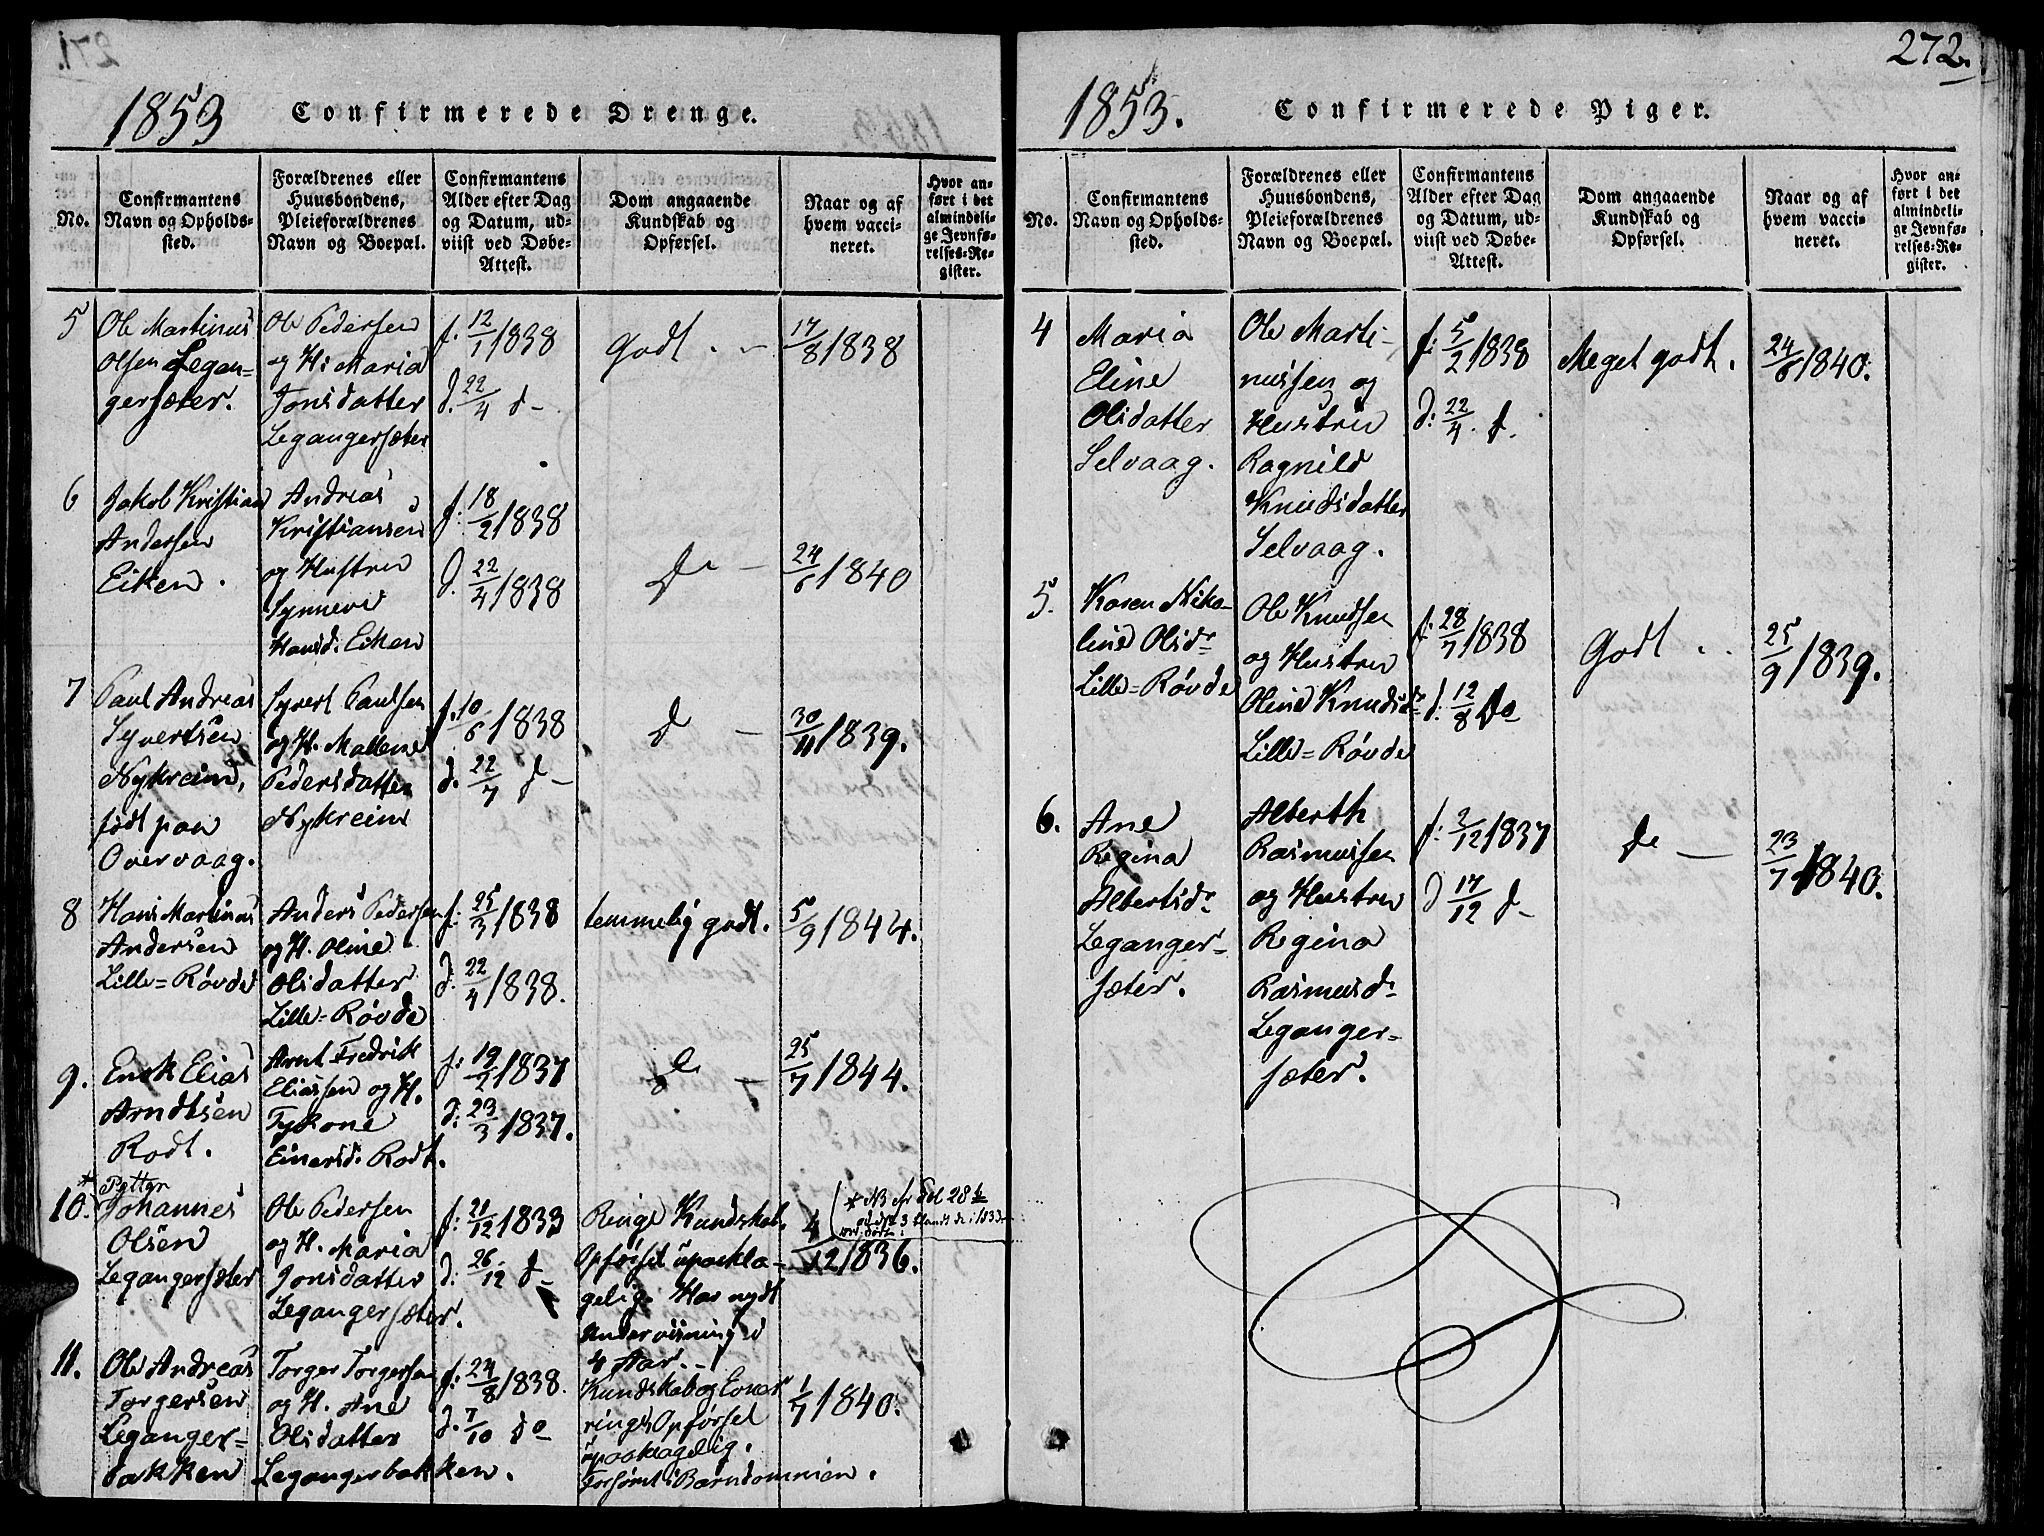 272.
1853
Confirmerede Drenge.
No.
Confirmantens
Navn og Opholds-
sted.
Forældrenes eller
Huusbondens,
Pleieforældrenes
Navn og Boepæl.
Confirmantens
Alder efter Dag
og Datum, ud-
viist ved Døbe-
Attest.
Dom angaaende
Kundskab og
Opførsel.
Naar og af
hvem vacci-
neret.
Hvor an-
ført i det
almindeli-
ge Jevnfø-
relses-Re-
gister.
5
Ole Martinus
Olsen Legan-
gersæter.
Ole Pedersen
og H: Maria
Jonsdatter
Legangersæter
f. 12/1 1838
d. 22/4 d-
Godt. -
17/8 1838
6
Jakob Kristian
Andersen
Eiken.
Andreas
Kristiansen
og Hustru
Synneve
Hansd. Eiken
f: 18/2 1838
d. 22/4 1838
Do -
24/6 1840
7
Paul Andreas
Syvertsen
Nykreim,
født paa
Overvaag.
Syvert Paulsen
og H. Mallene
Pedersdatter
Nykreim
f. 10/6 1838
d. 22/7 d-
d -
30/11 1839.
8
Hans Martinus
Andersen
Lille=Røvde
Anders Pedersen
og H. Oline
Olsdatter
Lille=Røvde
f: 25/3 1838
d. 22/4 1838.
temmelig godt.
5/9 1844.
9.
Enok Elias
Arndtsen
Rodt.
Arnt Fredrik
Eliassen og H.
Einersd. Rodt.
f: 19/2 1837
d: 23/3 1837.
do -
25/7 1844.
10. *
Petter
Johannes
Olsen
Legangersæter
Ole Pedersen
og H. Maria
Jonsdatter
Legangersæter.
f: 21/12 1833
d: 26/12 d-
Ringe Kundskab.
Opførsel upaakla-
gelig. Har nydt
Underviisning i
4 Aar. -
4/12 1836.
* NB
11.
Ole Andreas
Torgersen
Leganger=
bakken
Torger Torgersen
og H. Ane
Olsdatter
Legangerbakken.
f: 24/8 1838.
d. 7/10 do
Kundskab og Evner
ringe, Opførsel
upaaklagelig.
Forsømt i Barndommen.
1/7 1840.
1853.
Confirmerede Piger.
No.
Confirmantens
Navn og Opholds-
sted.
Forældrenes eller
Huusbondens,
Pleieforældrenes
Navn og Boepæl.
Confirmantens
Alder efter Dag
og Datum, ud-
viist ved Døbe-
Attest.
Dom angaaende
Kundskab og
Opførsel.
Naar og af
hvem vacci-
neret.
Hvor an-
ført i det
almindeli-
ge Jevnfø-
relses-Re-
gister.
4
Maria
Eline
Olsdatter
Selvaag.
Ole Marti-
nussen og
Hustru
Ragnild
Knudsdatter
Selvaag.
f: 5/2 1838
d: 22/4. d.
Meget godt.
24/6 1840.
5.
Karen Niko-
line Olsdr
Lille=Røvde
Ole Knudsen
og Hustru
Oline Knudsdr
Lille=Røvde
f: 28/7 1838
d: 12/8 do
Godt . .
25/9 1839.
6.
Ane
Regina
Albertsdr
Leganger-
sæter.
Alberth
Rasmussen
og Hustru
Regina
Rasmusdr
Leganger-
sæter.
f: 2/12 1837
d 17/12 d-
do -
23/7 1840.